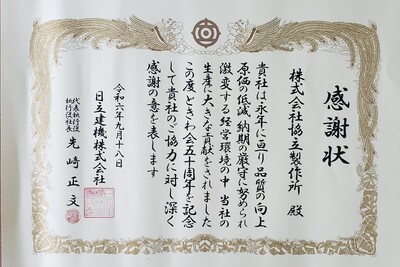 感謝状
株式会社協立製作所 殿
貴社は永年に亘り品質の向上
原価の低減 納期の厳守に努められ
激変する経営環境の中 当社の
生産に大きな貢献をされました
この度ときわ会五十周年を記念
して貴社のご協力に対し深く
感謝の意を表します
令和六年九月十八日
日立建機株式会社
代表執行役
執行役社長 先崎正文